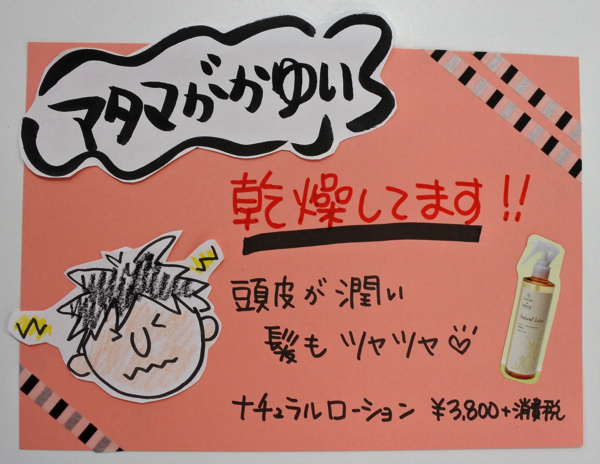 アタマがかゆい
乾燥してます!!
頭皮が潤い
髪もツヤツヤ♡
ナチュラルローション ¥3,800+消費税
Natural Lotion